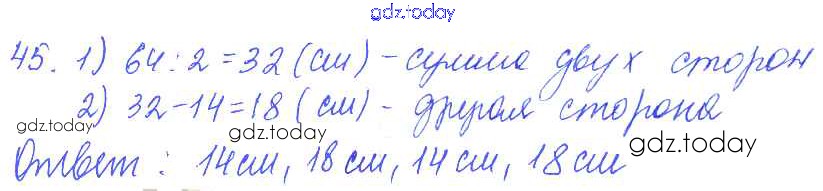 gdz.today
45. 1) 64:2=32 (см) - сумма двух сторон
2) 32-14=18 (см) - другая сторона
gdz.today
gdz.today
gdz.today
Ответ: 14см, 18см, 14см, 18см